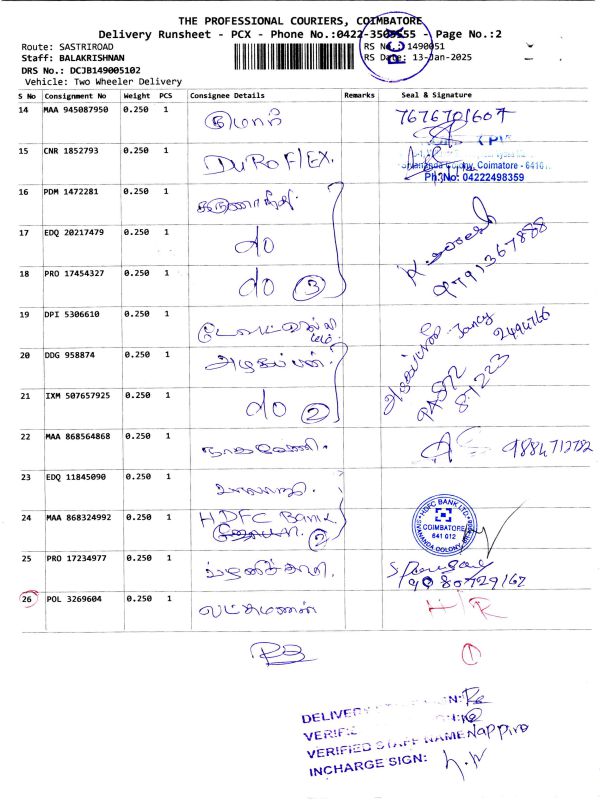 THE PROFESSIONAL COURIERS, COIMBATORE
Delivery Runsheet - PCX - Phone No.:0422-3509655 - Page No.:2
Route: SASTRIROAD
RS No.: 1490051
Staff: BALAKRISHNAN
RS Date: 13-Jan-2025
DRS No.: DCJB149005102
Vehicle: Two Wheeler Delivery
S No Consignment No Weight PCS Consignee Details Remarks Seal & Signature
14 MAA 945087950 0.250 1 7676701607
15 CNR 1852793 0.250 1 DUROFLEX.
Colony, Coimatore - 6410
Ph. No: 04222498359
16 PDM 1472281 0.250 1
17 EDQ 20217479 0.250 1 do
K. Suresh 9791367888
18 PRO 17454327 0.250 1 do 3
19 DPI 5306610 0.250 1
Jancy 2494766
20 DDG 958874 0.250 1 அழகப்பன்.
21 IXM 507657925 0.250 1 do 2
81223
22 MAA 868564868 0.250 1 நாகவேணி. 9884712782
23 EDQ 11845090 0.250 1
24 MAA 868324992 0.250 1 HDFC Bank 2
HDFC BANK LTD.
COIMBATORE
641 012
25 PRO 17234977 0.250 1 பழனிச்சாமி.
9080729162
26 POL 3269604 0.250 1 லட்சுமணன் H/R
DELIVERY SIGN:
VERIFIED STAFF NAME
INCHARGE SIGN: